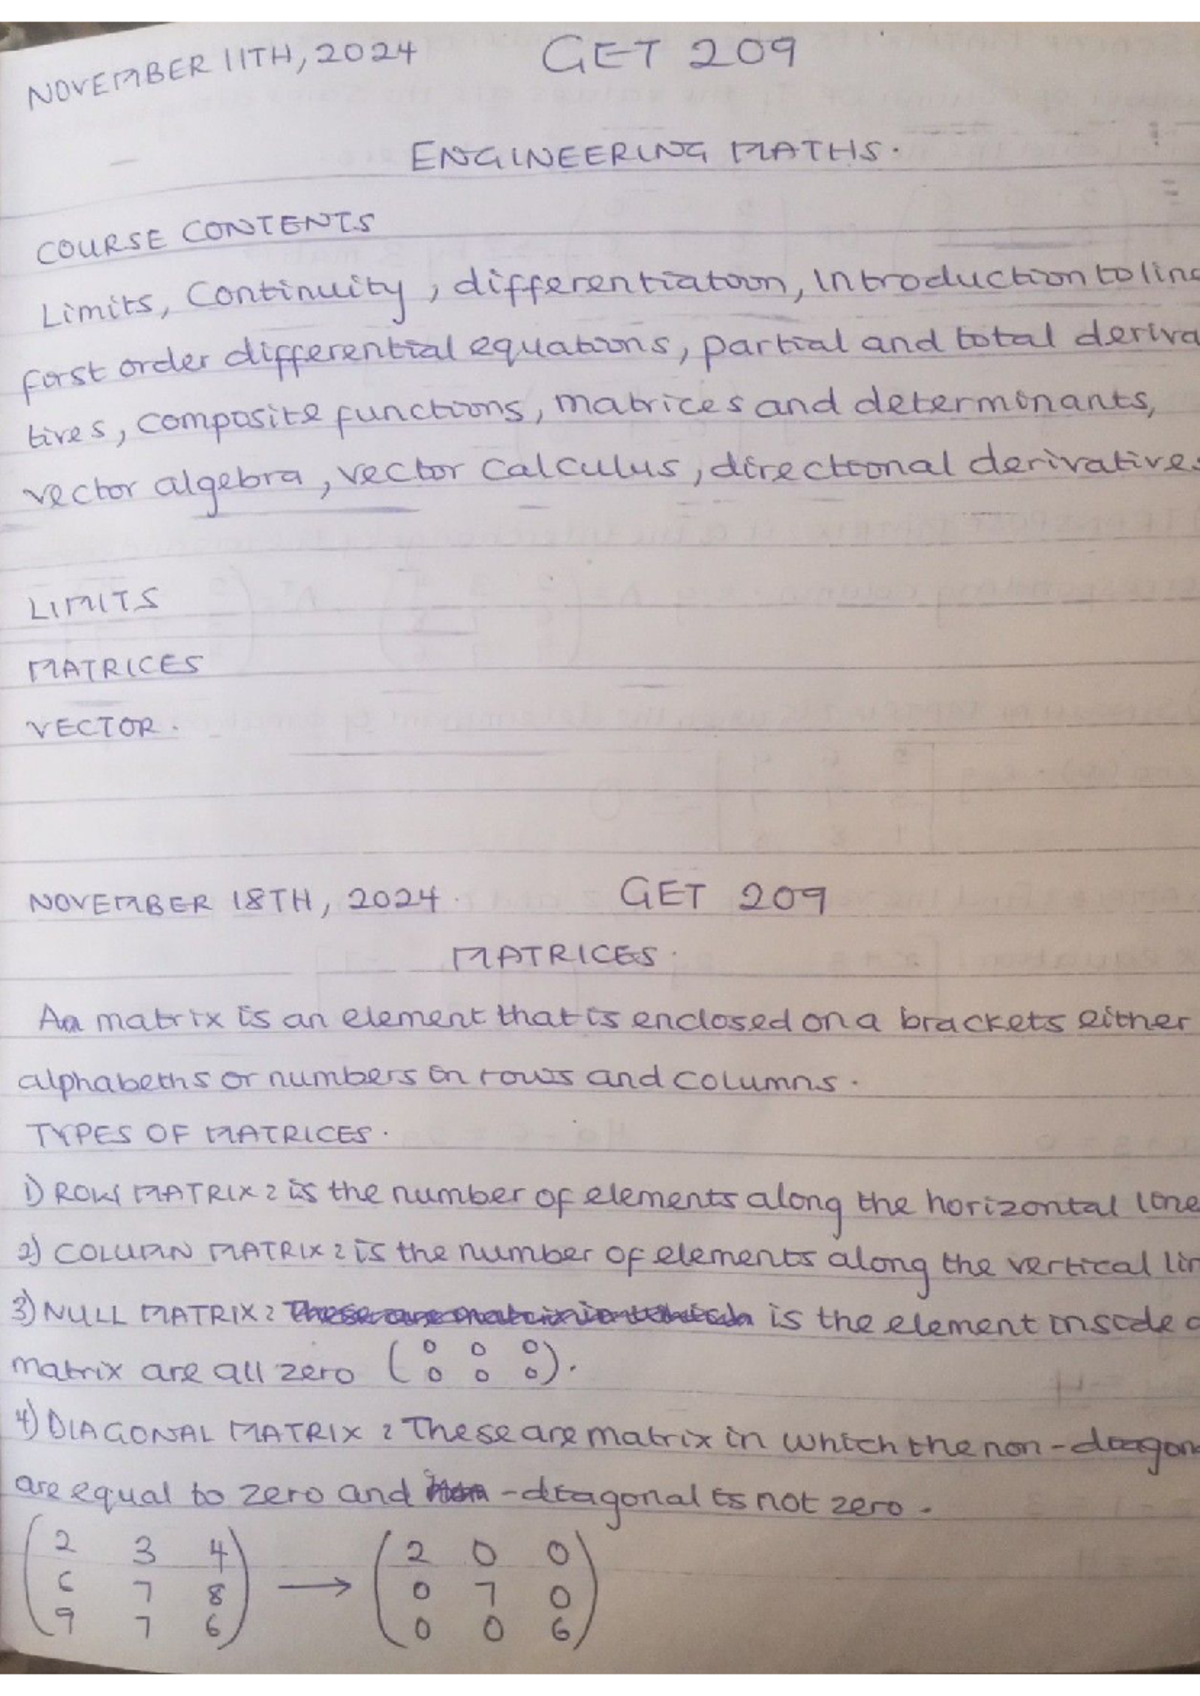 NOVEMBER 11TH, 2024 GET 209
ENGINEERING MATHS.
COURSE CONTENTS
Limits, Continuity, differentiation, Introduction to line
first order differential equations, partial and total deriva
tives, composite functions, matrices and determinants,
vector algebra, vector calculus, directional derivatives
LIMITS
MATRICES
VECTOR.
NOVEMBER 18TH, 2024. GET 209
MATRICES.
A matrix is an element that is enclosed on a brackets either
alphabeths or numbers in rows and columns.
TYPES OF MATRICES.
1) ROW MATRIX: is the number of elements along the horizontal line
2) COLUMN MATRIX: is the number of elements along the vertical lin
3) NULL MATRIX: is the element inside a
matrix are all zero (0 0 0
0 0 0).
4) DIAGONAL MATRIX: These are matrix in which the non-diagona
are equal to zero and -diagonal is not zero.
2 3 4 → 2 0 0
6 7 8 0 7 0
9 7 6 0 0 6